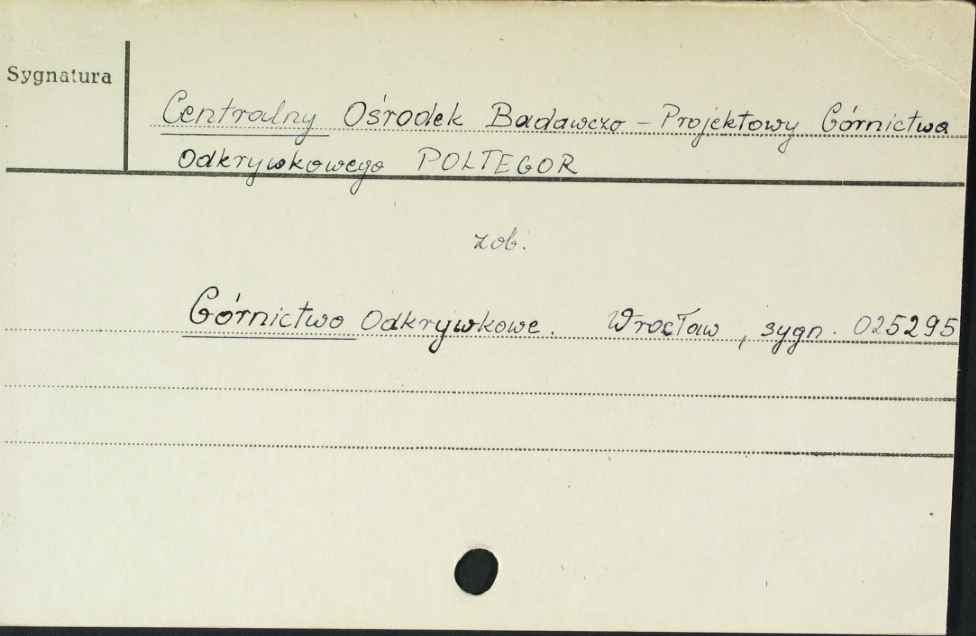 Sygnatura
Centralny Ośrodek Badawczo - Projektowy Górnictwa
Odkrywkowego POLTEGOR
zob.
Górnictwo Odkrywkowe. Wrocław, sygn. 025295